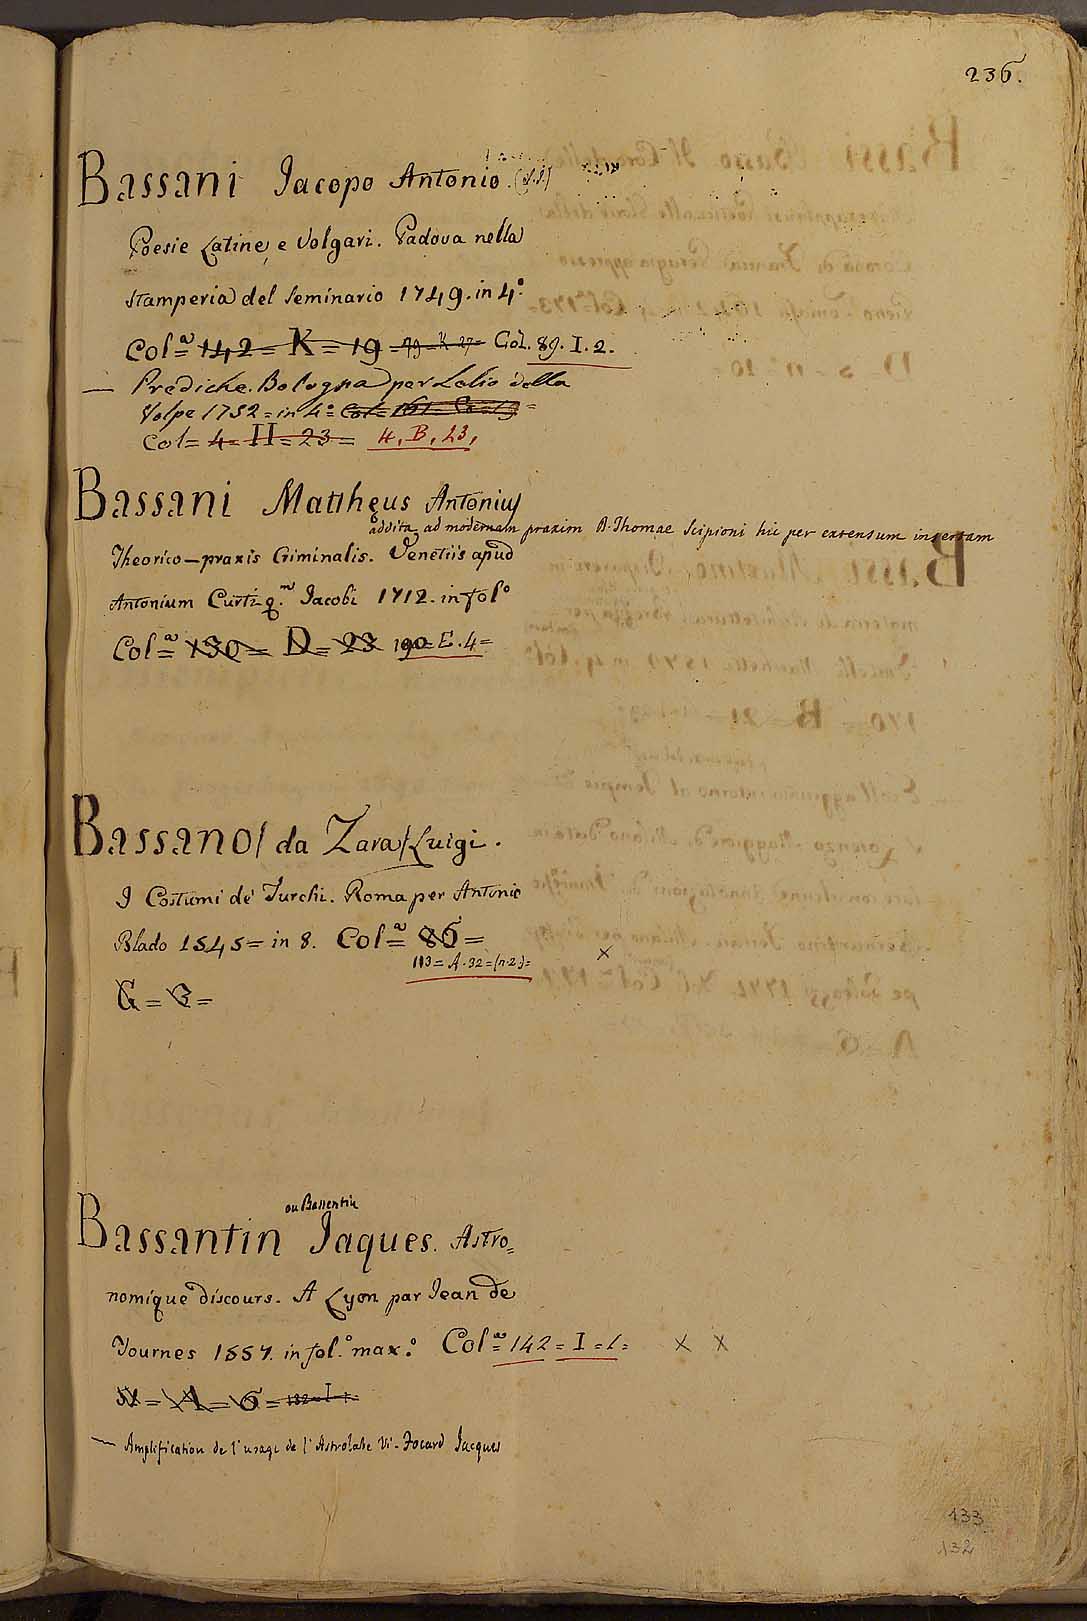 236.
Bassani Jacopo Antonio.
Poesie Latine, e Volgari. Padova nella
Stamperia del Seminario 1749. in 4.º
Col.ª 142 = K = 19 = 79 = K 27 = Col. 89. I. 2.
— Prediche. Bologna per Lelio della
Volpe 1752 = in 4.º Col =
Col = 4 = H = 23 = 4, B, 23,
Bassani Mattheus Antonius
addita ad modernam praxim A. Thomae Scipioni hic per extensum insertam
Theorico-praxis Criminalis. Venetiis apud
Antonium Curti q.m Jacobi 1712. in fol.º
Col.ª = 130 = D = 23 190 = E. 4 =
Bassano/ da Zara/ Luigi.
I Costumi de' Turchi. Roma per Antonio
Blado 1545 = in 8. Col.ª = 86 =
113 = A. 32 = (n. 2.) =
G = 3 =
ou Bassentin
Bassantin Jaques. Astro=
nomique discours. A Lyon par Jean de
Tournes 1557. in fol.º max.º Col.ª = 142 = I = 1 = x x
= A = 6 = 132 = I
— Amplification de l'usage de l'Astrolabe Vi- Focard Jacques
133
132